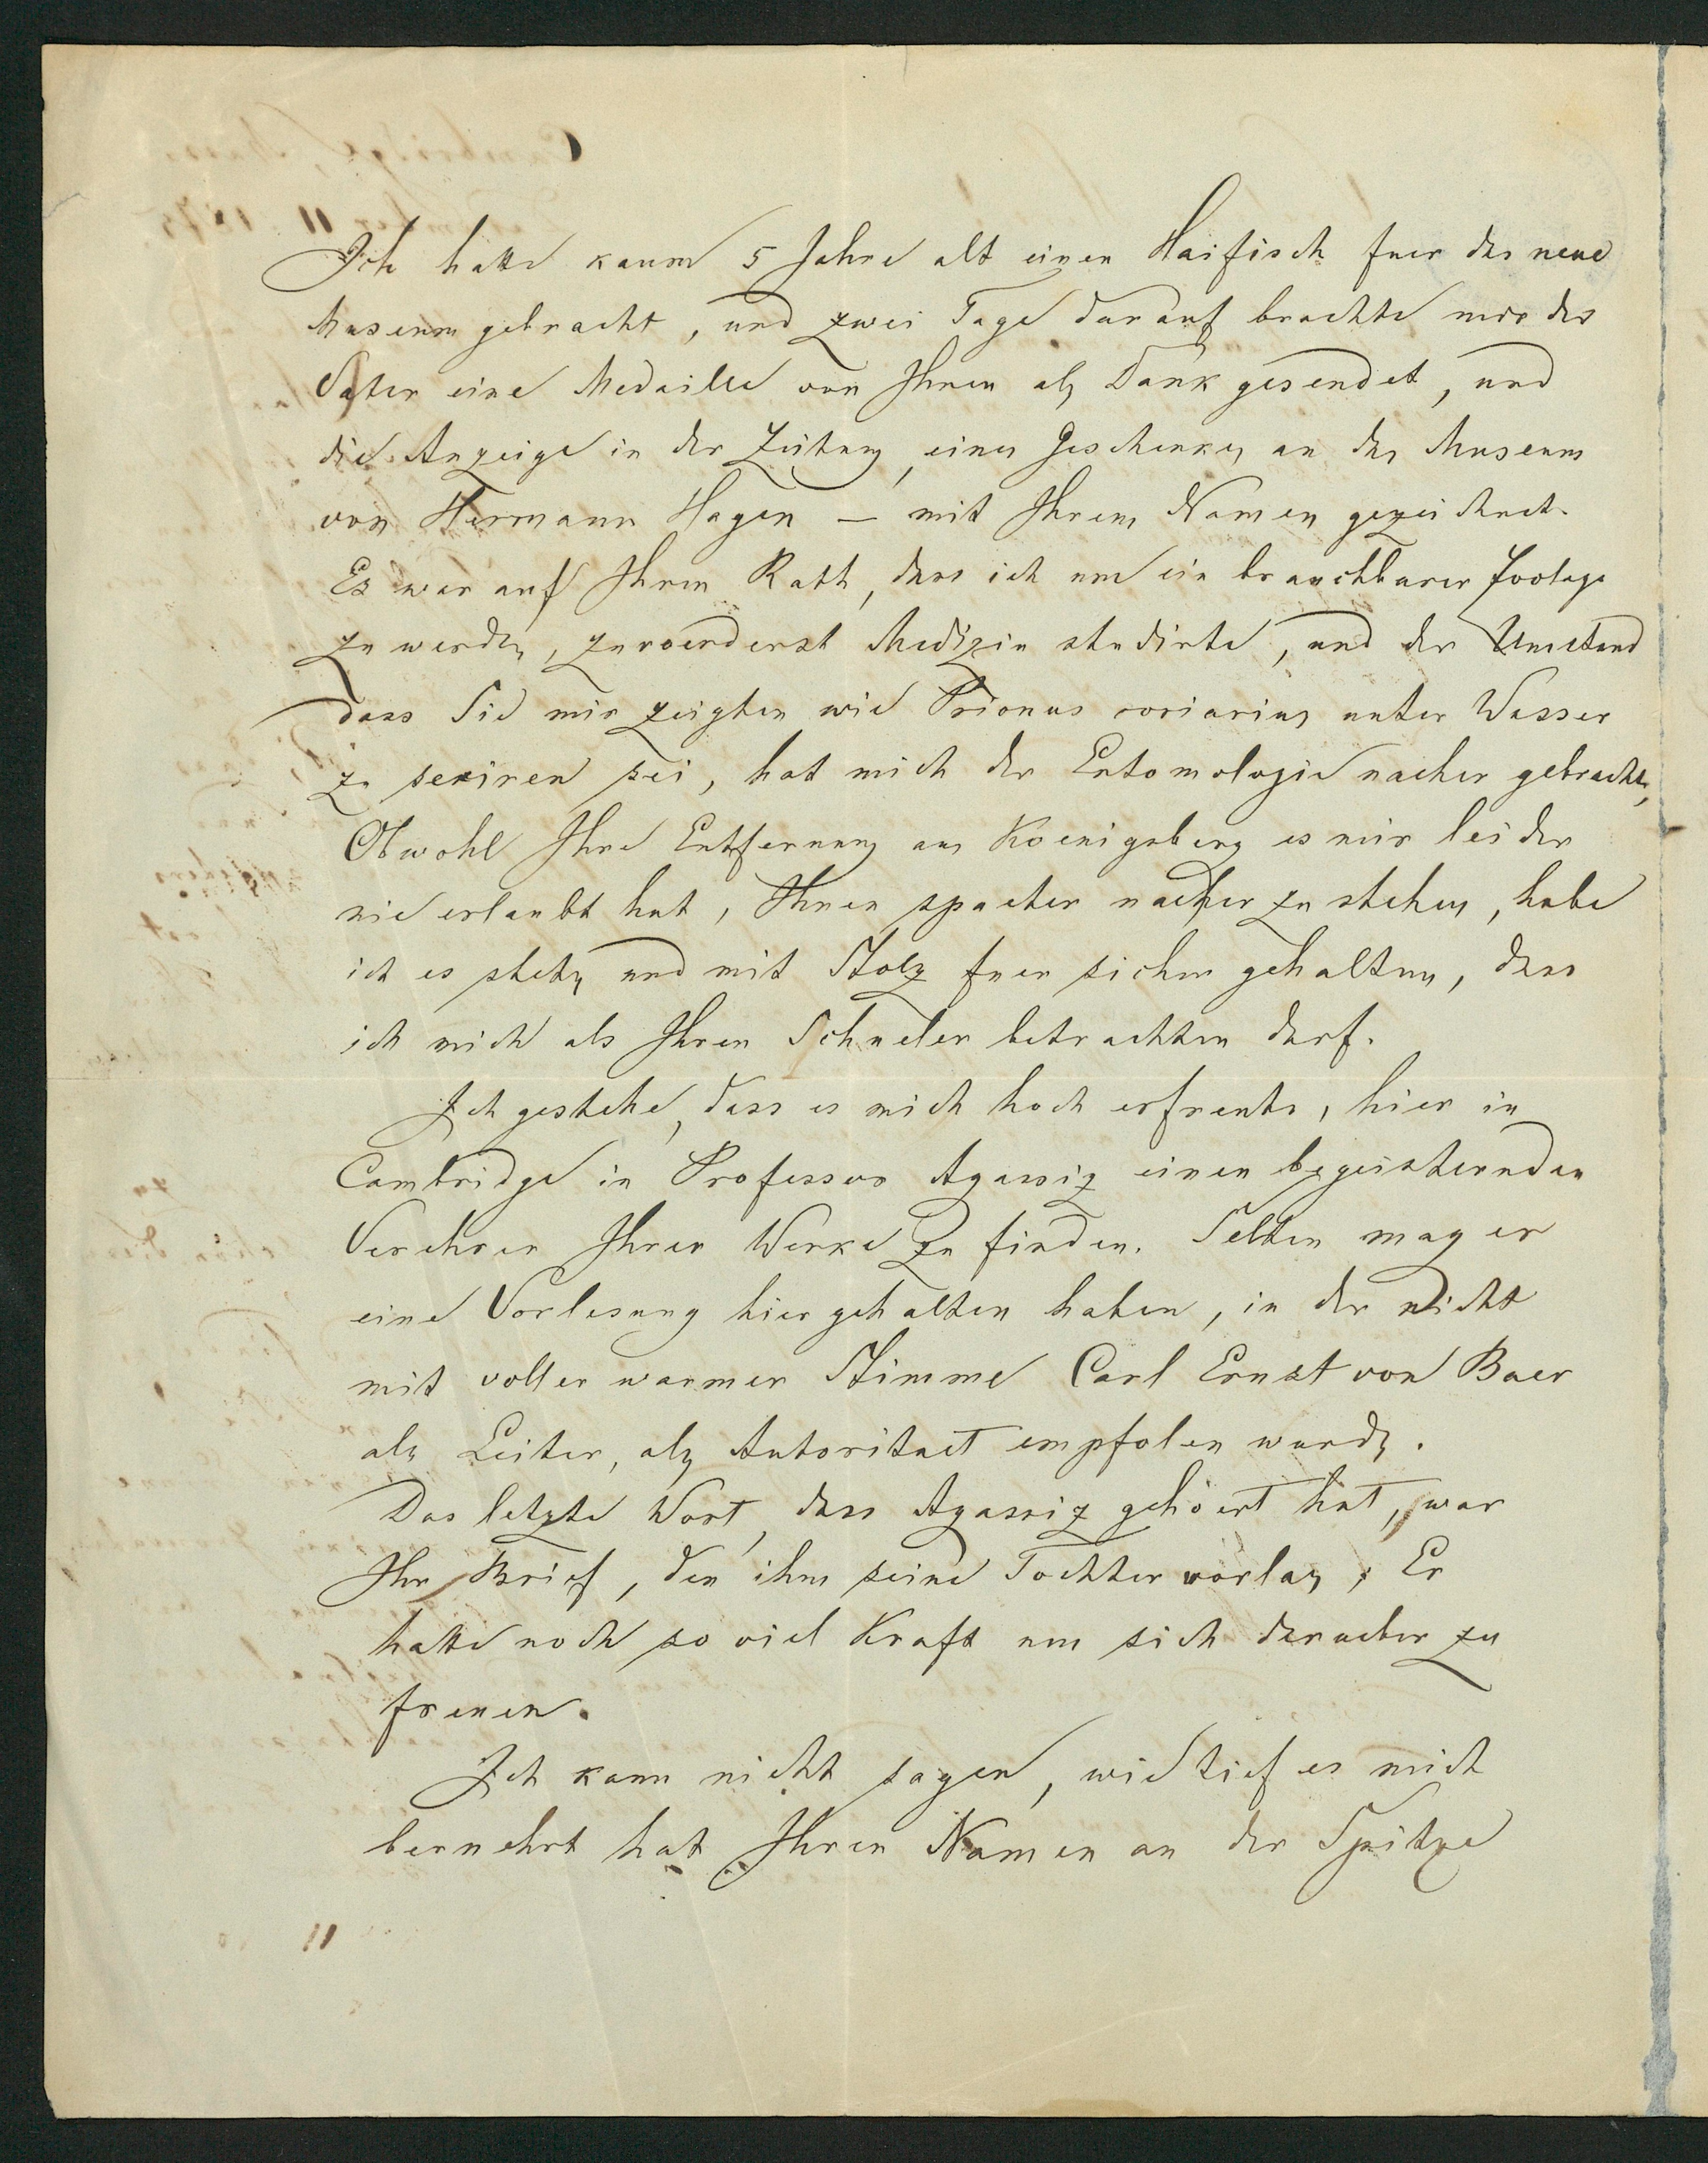 Ich hatte kaum 5 Jahre alt einen Haifisch fuer das neue
Museum gebracht, und zwei Tage darauf brachte mir der
Vater eine Medaille von Ihnen als Dank gesendet, und
die Anzeige in der Zeitung, eines Geschenkes an das Museum
von Hermann Hagen – mit Ihrem Namen gezeichnet.
Es war auf Ihren Rath, dass ich um ein brauchbarer Zoologe
zu werden, zuvoerderst Medizin studirte, und der Umstand
dass Sie mir zeigten wie Prionus coriarius unter Wasser
zu seciren sei, hat mich der Entomologie naeher gebracht,
Obwohl Ihre Entfernung aus Koenigsberg es mir leider
nie erlaubt hat, Ihnen spaeter naeher zu stehen, habe
ich es stets und mit Stolz fuer sicher gehalten, dass
ich mich als Ihren Schueler betrachten darf.
Ich gestehe, dass es mich hoch erfreute, hier in
Cambridge in Professor Agassiz einen begeisternden
Verehrer Ihrer Werke zu finden. Selten mag er
eine Vorlesung hier gehalten haben, in der nicht
mit voller warmer Stimme Carl Ernst von Baer
als Leiter, als Autoritaet empfolen wurde.
Das letzte Wort, dass Agassiz gehöert hat, war
Ihr Brief, den ihm seine Tochter vorlas; Er
hatte noch so viel Kraft um sich darueber zu
freuen.
Ich kann nicht sagen, wie tief es mich
beruehrt hat Ihren Namen an der Spitze